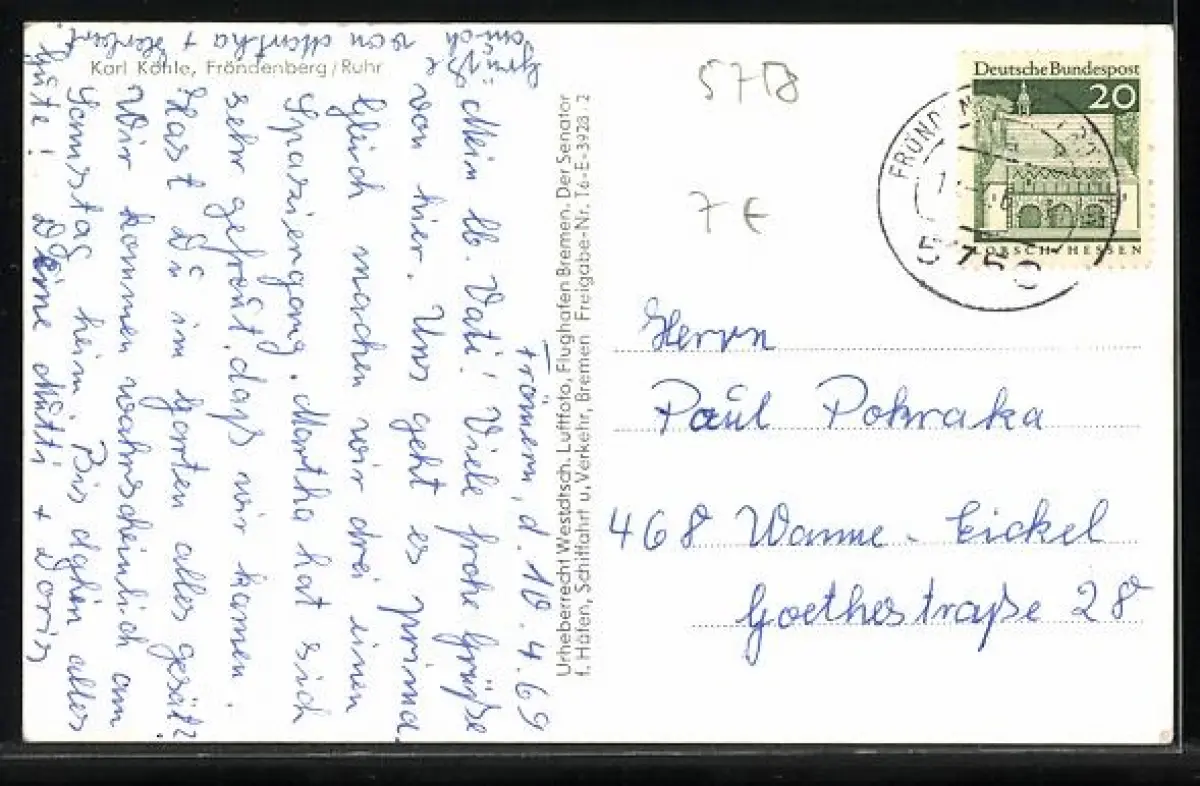 Karl Köhle, Fröndenberg/Ruhr
Frömern, d. 10.4.69
Mein lb. Vati! Viele frohe Grüße
von hier. Uns geht es prima.
Gleich machen wir drei einen
Spaziergang. Martha hat sich
sehr gefreut, dass wir kamen.
Hast Du im Garten alles gesät?
Wir kommen wahrscheinlich am
Samstag heim. Bis dahin alles
Gute! Deine Mutti + Doris
Grüße
auch von Martha + Herbert
Urheberrecht Westdtsch. Luftfoto, Flughafen Bremen. Der Senator
f. Häfen, Schiffahrt u. Verkehr, Bremen Freigabe-Nr. 16-E-3928 2
5758
7 €
Deutsche Bundespost
20
LORSCH/HESSEN
FRÖND
5750
Herrn
Paul Pokraka
468 Wanne-Eickel
Goethestraße 28